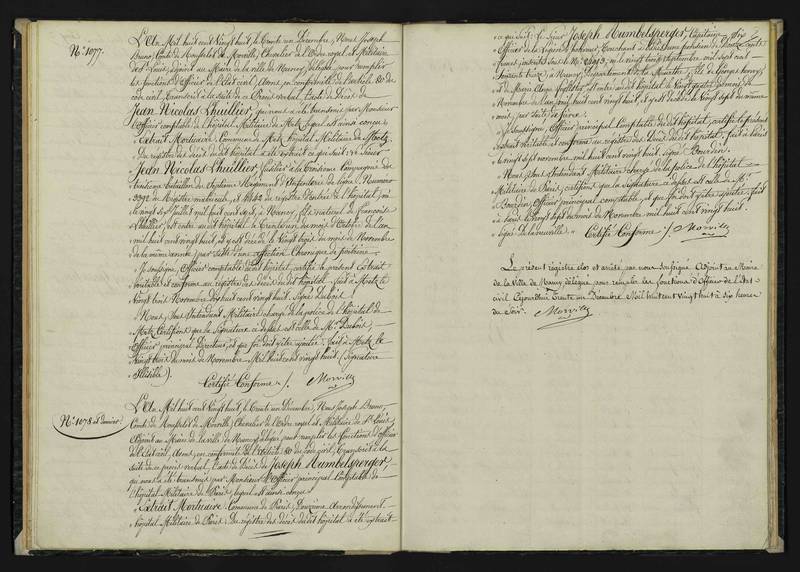 N.° 1077.
L'An Mil huit cent Vingt huit, le Trente un Décembre, Nous Joseph
Bruno, Comte de Morville, Chevalier de l'Ordre royal et Militaire
de St Louis, Adjoint au Maire de la ville de Nancy, délégué pour remplir
les fonctions d'Officier de l'Etat civil, avons, en conformité de l'article 80 du
code civil, transcrit à la suite de ce Procès verbal, l'acte de Décès de
Jean Nicolas Lhuillier, qui nous a été transmis par Monsieur
l'Officier comptable de l'hôpital Militaire de Metz, lequel est ainsi conçu:
« Extrait Mortuaire. Commune de Metz. hôpital Militaire de Metz.
« Du registre des décès du dit hôpital a été extrait ce qui suit: Le Sieur
Jean Nicolas Lhuillier, fusilier à la Troisième Compagnie du
Bataillon du Régiment d'Infanterie de ligne, Numéro
du Registre matricule, et de registre d'entrée de l'hôpital, né
le vingt sept Juillet mil huit cent sept, à Nancy, fils naturel de Françoise
Lhuillier, est entré au dit hôpital le Trente un du mois d'Octobre de l'an
mil huit cent vingt huit, et y est décédé le Vingt trois du mois de Novembre
de la même année par suite d'une affection Chronique de poitrine.
« Je soussigné, Officier comptable du dit hôpital, certifie le présent Extrait
véritable et conforme au registre des décès du dit hôpital. fait à Metz le
Vingt trois Novembre dix huit cent vingt huit. Signé Dubois.
« Nous, Sous Intendant Militaire chargé de la police de l'hôpital de
Metz, Certifions que la Signature ci dessus est celle de Mr. Dubois,
Officier principal Directeur, et que foi doit y être ajoutée. fait à Metz le
Vingt trois du mois de Novembre Mil huit cent vingt huit (Signature
illisible).
Certifié Conforme »/. Morville
N.° 1078 et dernier.
L'An Mil huit cent Vingt huit, le Trente un Décembre, Nous Joseph Bruno,
Comte de Morville, Chevalier de l'Ordre royal et Militaire de St Louis,
Adjoint au Maire de la ville de Nancy, délégué pour remplir les fonctions d'Officier
de l'Etat civil, avons, en conformité de l'Article 80 du code civil, transcrit à la
suite de ce procès verbal, l'acte de Décès de Joseph Humbelsperger,
qui nous a été transmis par Monsieur l'Officier principal Comptable de
l'hôpital Militaire de Paris, lequel est ainsi conçu:
« Extrait Mortuaire. Commune de Paris, Douzième Arrondissement.
« hôpital Militaire de Paris. Du registre des décès du dit hôpital a été extrait
« ce qui suit: Le Sieur Joseph Humbelsperger, Capitaine
« Officier de la Légion d'honneur,
francs, le vingt septembre mil sept cent
soixante treize à Nancy, Département de la Meurthe, fils de Georges
et de Marie Anne est entré au dit hôpital le Vingt quatre du mois de
Novembre de l'an mil huit cent vingt huit, et y est décédé le Vingt sept du même
mois, par suite de fièvre.
« Je soussigné, Officier principal Comptable du dit hôpital, certifie le présent
extrait véritable et conforme au registre des Décès du dit hôpital. fait à Paris
le vingt sept novembre, mil huit cent vingt huit. Signé Bourdin.
« Nous Sous Intendant Militaire chargé de la police de l'hôpital
Militaire de Paris, certifions que la Signature ci dessus est celle de Mr.
Bourdin, Officier principal comptable, et que foi doit y être ajoutée. fait
à Paris le vingt sept du mois de Novembre mil huit cent vingt huit.
« Signé Certifié Conforme »/. Morville
Le présent registre clos et arrêté par nous soussigné Adjoint au Maire
de la Ville de Nancy délégué pour remplir les fonctions d'Officier de l'état
civil Cejourd'hui Trente un Décembre Mil huit cent vingt huit à Six heures
du Soir. Morville